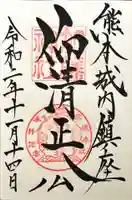 熊本城内鎮座
仰清正公
令和二年十一月十四日